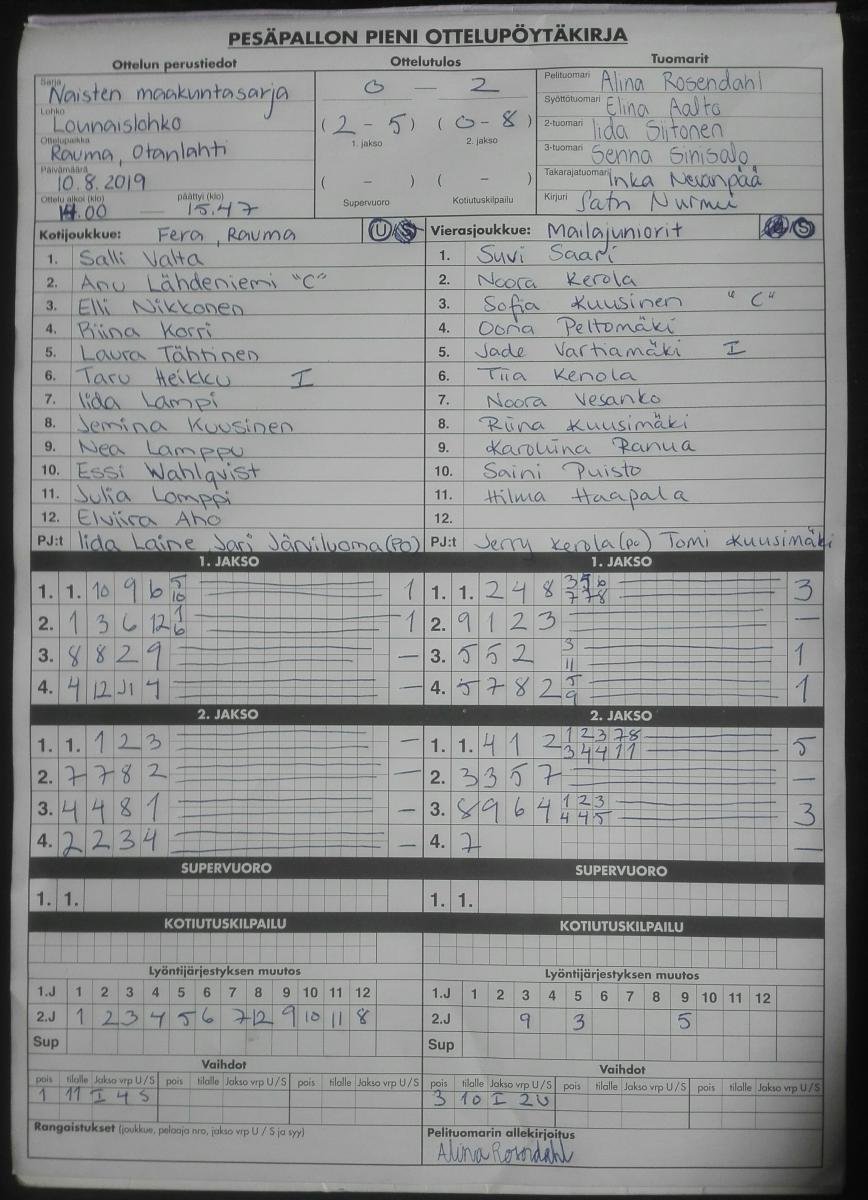 PESÄPALLON PIENI OTTELUPÖYTÄKIRJA
Ottelun perustiedot
Sarja Naisten maakuntasarja
Lohko Lounaislohko
Ottelupaikka Rauma, Otanlahti
Päivämäärä 10.8.2019
Ottelu alkoi (klo) 14.00 — päättyi (klo) 15.47
Ottelutulos
0 — 2
(2 - 5) (0 - 8)
1. jakso 2. jakso
( - ) ( - )
Supervuoro Kotiutuskilpailu
Tuomarit
Pelituomari Alina Rosendahl
Syöttötuomari Elina Aalto
2-tuomari Iida Siitonen
3-tuomari Senna Sinisalo
Takarajatuomari Inka Nevanpää
Kirjuri Satu Nurmi
Kotijoukkue: Fera, Rauma U/S
1. Salli Valta
2. Anu Lähdeniemi "C"
3. Elli Nikkonen
4. Riina Korri
5. Laura Tähtinen
6. Taru Heikku I
7. Iida Lampi
8. Jemina Kuusinen
9. Nea Lamppu
10. Essi Wahlqvist
11. Julia Lomppi
12. Elviira Aho
PJ:t Iida Laine Jari Järviluoma (PO)
Vierasjoukkue: Mailajuniorit U/S
1. Suvi Saari
2. Noora Kerola
3. Sofia Kuusinen "C"
4. Oona Peltomäki
5. Jade Vartiamäki I
6. Tiia Kerola
7. Noora Vesanko
8. Riina Kuusimäki
9. Karoliina Ranua
10. Saini Puisto
11. Hilma Haapala
12.
PJ:t Jerry Kerola (po) Tomi Kuusimäki
1. JAKSO
1. 1. 10 9 6 5 10 1
2. 1 3 6 12 1 6 1
3. 8 8 2 9 —
4. 4 12 11 4 —
1. JAKSO
1. 1. 2 4 8 3 5 6 7 7 8 3
2. 9 1 2 3 —
3. 5 5 2 3 11 1
4. 5 7 8 2 5 9 1
2. JAKSO
1. 1. 1 2 3 —
2. 7 7 8 2 —
3. 4 4 8 1 —
4. 2 2 3 4 —
2. JAKSO
1. 1. 4 1 2 1 2 3 7 8 3 4 4 11 5
2. 3 3 5 7 —
3. 8 9 6 4 1 2 3 4 4 5 3
4. 7 —
SUPERVUORO
1. 1.
SUPERVUORO
1. 1.
KOTIUTUSKILPAILU
KOTIUTUSKILPAILU
Lyöntijärjestyksen muutos
1.J 1 2 3 4 5 6 7 8 9 10 11 12
2.J 1 2 3 4 5 6 7 12 9 10 11 8
Sup
Lyöntijärjestyksen muutos
1.J 1 2 3 4 5 6 7 8 9 10 11 12
2.J 9 3 5
Sup
Vaihdot
pois tilalle Jakso vrp U/S pois tilalle Jakso vrp U/S pois tilalle Jakso vrp U/S
1 11 I 4 S
Vaihdot
pois tilalle Jakso vrp U/S pois tilalle Jakso vrp U/S pois tilalle Jakso vrp U/S
3 10 I 2 U
Rangaistukset (joukkue, pelaaja nro, jakso vrp U / S ja syy)
Pelituomarin allekirjoitus
Alina Rosendahl